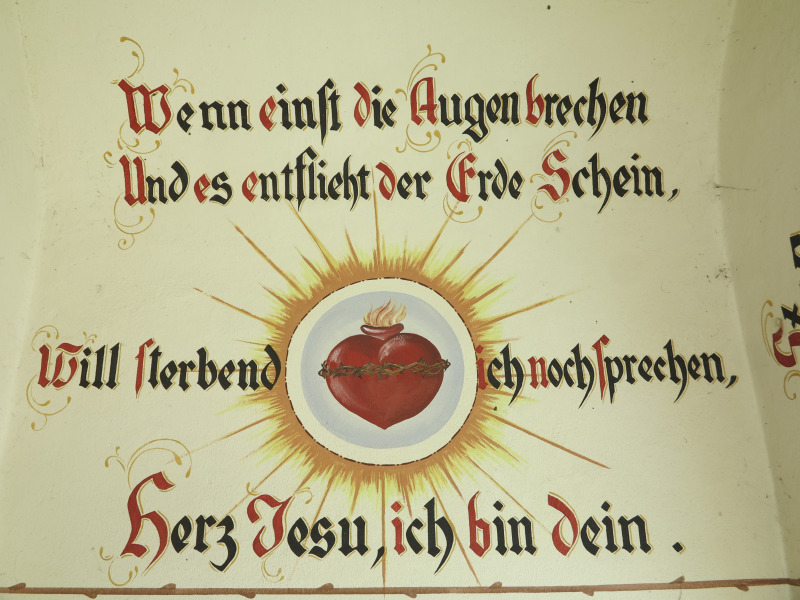 Wenn einst die Augen brechen
Und es entflieht der Erde Schein,
Will sterbend ich noch sprechen,
Herz Jesu, ich bin dein.